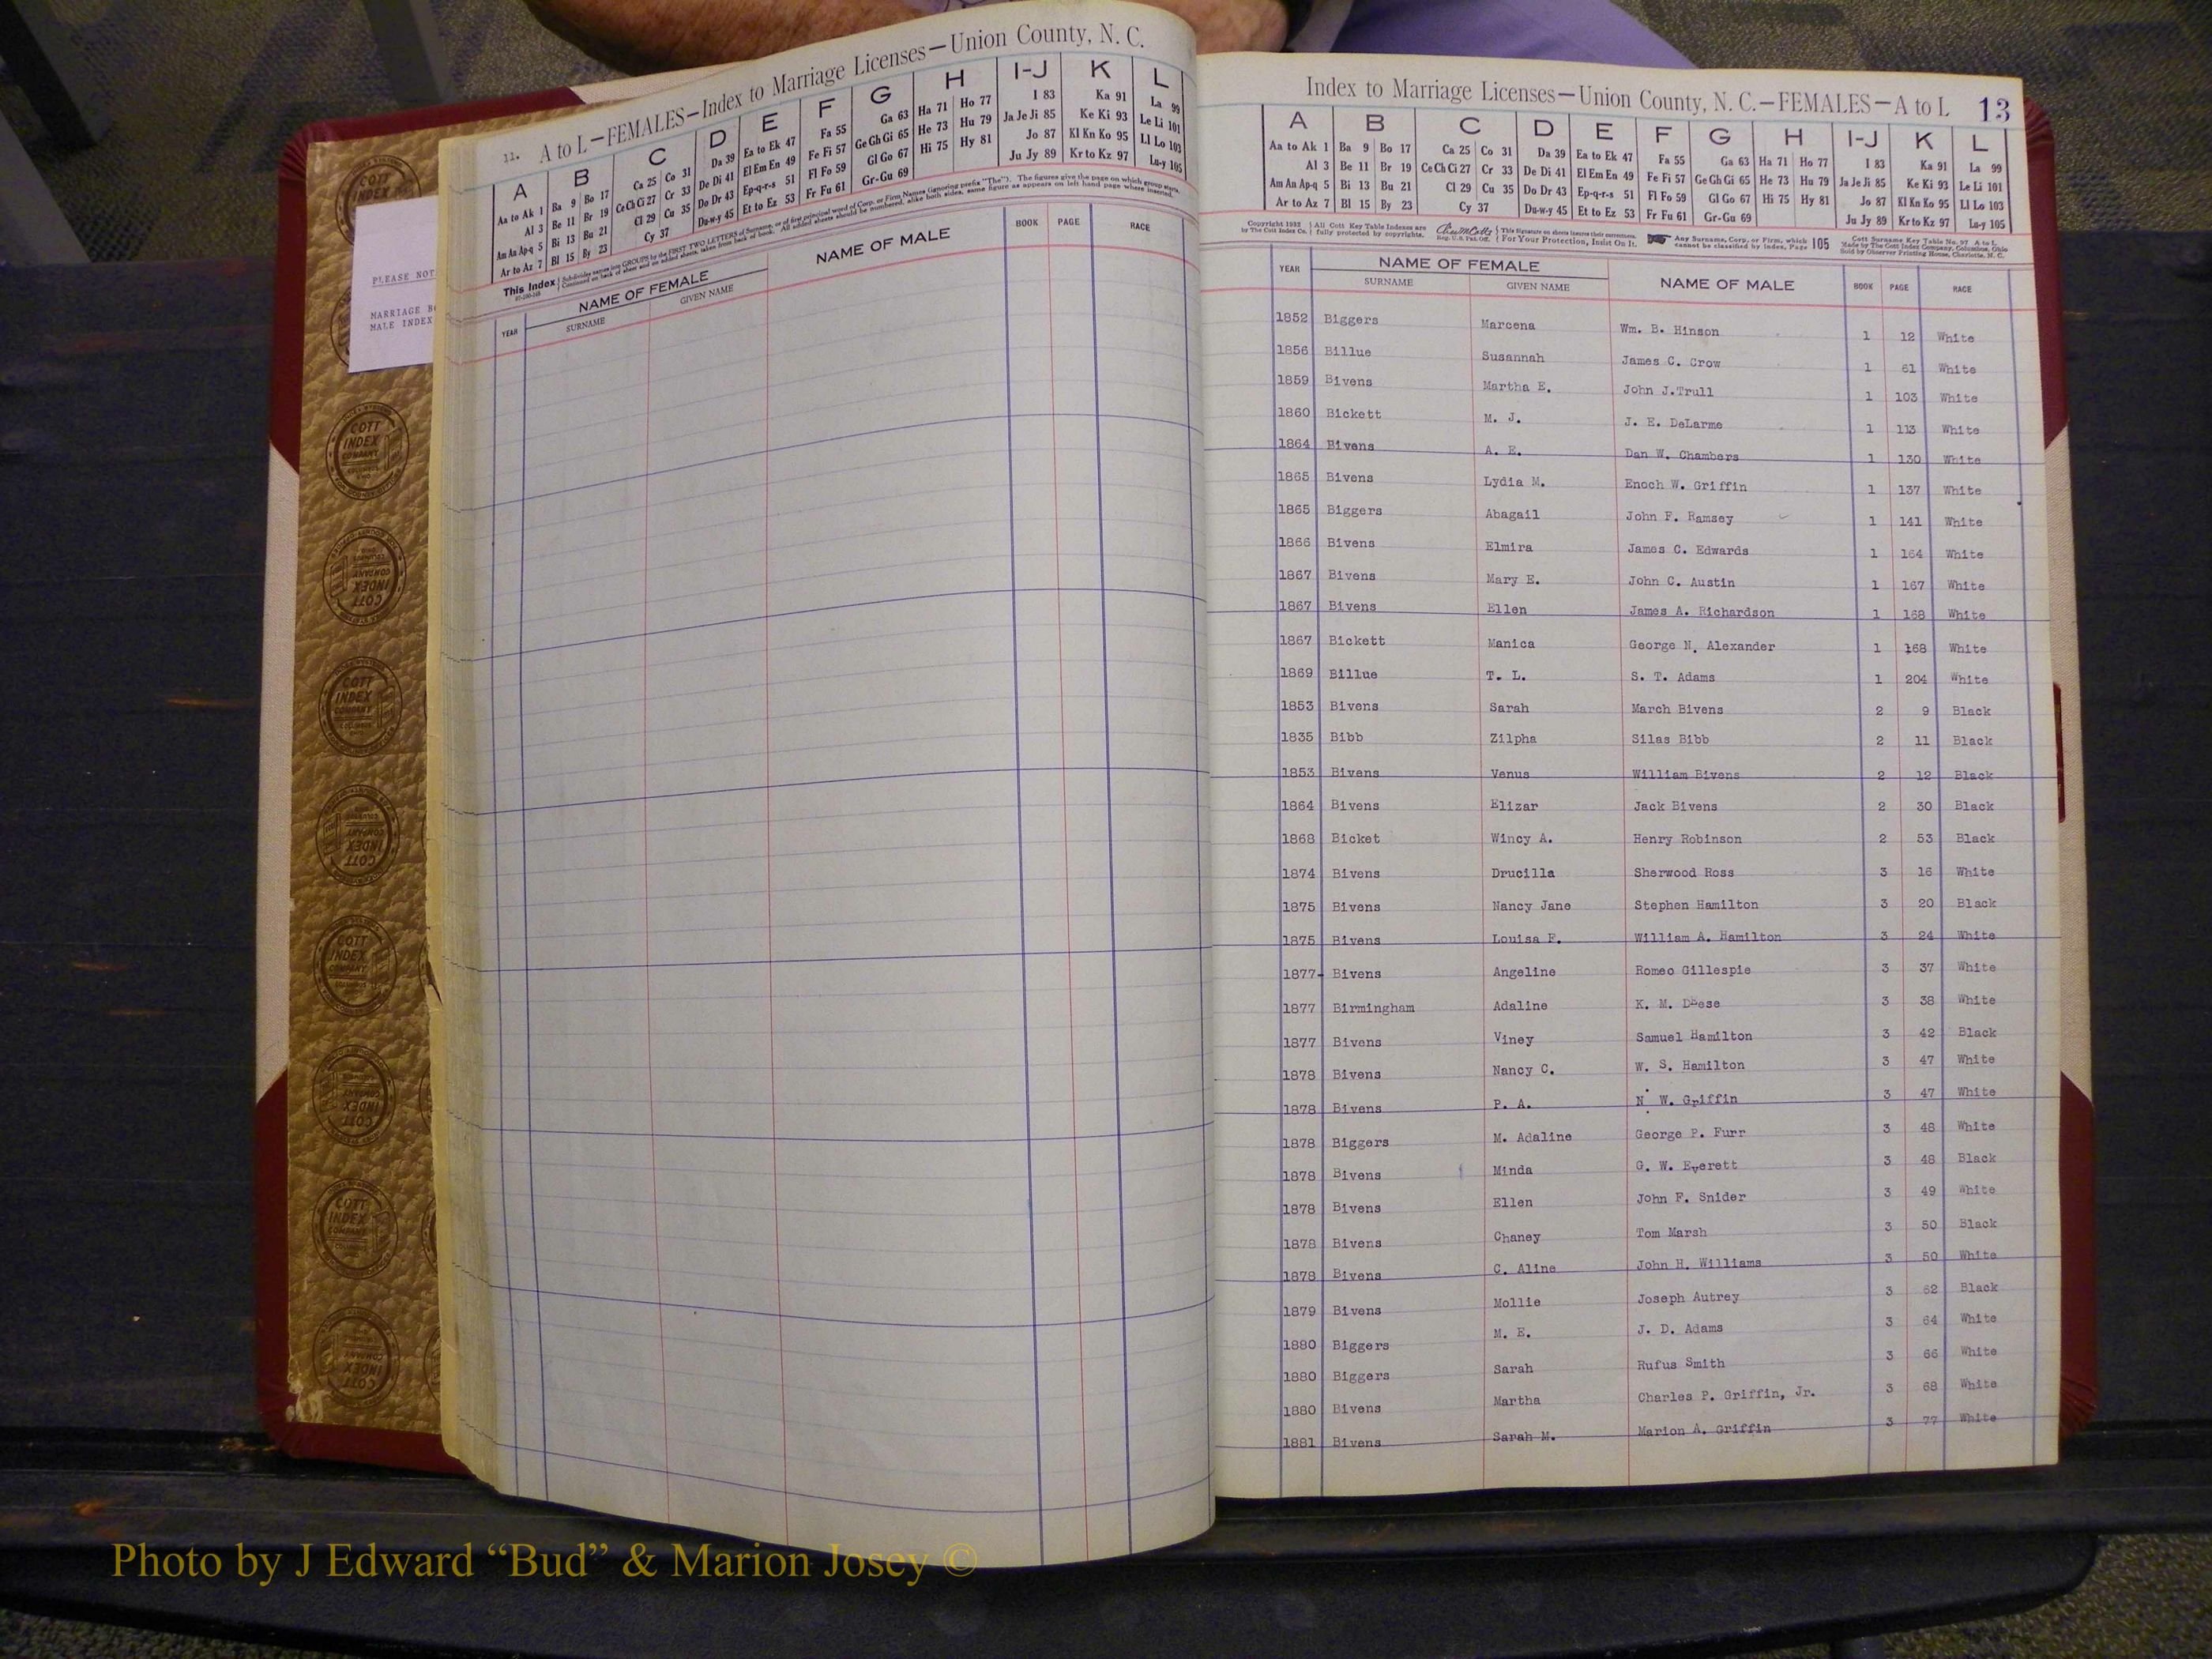 11. A to L—FEMALES—Index to Marriage Licenses—Union County, N. C.
A B C D E F G H I-J K L
Aa to Ak 1 Ba 9 Bo 17 Ca 25 Co 31 Da 39 Ea to Ek 47 Fa 55 Ga 63 Ha 71 Ho 77 I 83 Ka 91 La 99
Al 3 Be 11 Br 19 Ce Ch Ci 27 Cr 33 De Di 41 El Em En 49 Fe Fi 57 Ge Gh Gi 65 He 73 Hu 79 Ja Je Ji 85 Ke Ki 93 Le Li 101
Am An Ap-q 5 Bi 13 Bu 21 Cl 29 Cu 35 Do Dr 43 Ep-q-r-s 51 Fl Fo 59 Gl Go 67 Hi 75 Hy 81 Jo 87 Kl Kn Ko 95 Ll Lo 103
Ar to Az 7 Bl 15 By 23 Cy 37 Du-w-y 45 Et to Ez 53 Fr Fu 61 Gr-Gu 69 Ju Jy 89 Kr to Kz 97 Lu-y 105
This Index
YEAR NAME OF FEMALE NAME OF MALE BOOK PAGE RACE
SURNAME GIVEN NAME
PLEASE NOT
MARRIAGE B
MALE INDEX
COTT INDEX COMPANY
Index to Marriage Licenses—Union County, N. C.—FEMALES—A to L 13
A B C D E F G H I-J K L
Aa to Ak 1 Ba 9 Bo 17 Ca 25 Co 31 Da 39 Ea to Ek 47 Fa 55 Ga 63 Ha 71 Ho 77 I 83 Ka 91 La 99
Al 3 Be 11 Br 19 Ce Ch Ci 27 Cr 33 De Di 41 El Em En 49 Fe Fi 57 Ge Gh Gi 65 He 73 Hu 79 Ja Je Ji 85 Ke Ki 93 Le Li 101
Am An Ap-q 5 Bi 13 Bu 21 Cl 29 Cu 35 Do Dr 43 Ep-q-r-s 51 Fl Fo 59 Gl Go 67 Hi 75 Hy 81 Jo 87 Kl Kn Ko 95 Ll Lo 103
Ar to Az 7 Bl 15 By 23 Cy 37 Du-w-y 45 Et to Ez 53 Fr Fu 61 Gr-Gu 69 Ju Jy 89 Kr to Kz 97 Lu-y 105
Copyright 1932 by The Cott Index Co. All Cott Key Table Indexes are fully protected by copyrights. Reg. U.S. Pat. Off. This Signature on sheets insures their correctness. For Your Protection, Insist On It. Any Surname, Corp. or Firm, which cannot be classified by Index, Page 105
YEAR NAME OF FEMALE NAME OF MALE BOOK PAGE RACE
SURNAME GIVEN NAME
1852 Biggers Marcena Wm. B. Hinson 1 12 White
1856 Billue Susannah James C. Crow 1 61 White
1859 Bivens Martha E. John J.Trull 1 103 White
1860 Bickett M. J. J. E. DeLarme 1 113 White
1864 Bivens A. E. Dan W. Chambers 1 130 White
1865 Bivens Lydia M. Enoch W. Griffin 1 137 White
1865 Biggers Abagail John F. Ramsey 1 141 White
1866 Bivens Elmira James C. Edwards 1 164 White
1867 Bivens Mary E. John C. Austin 1 167 White
1867 Bivens Ellen James A. Richardson 1 168 White
1867 Bickett Manica George N. Alexander 1 168 White
1869 Billue T. L. S. T. Adams 1 204 White
1853 Bivens Sarah March Bivens 2 9 Black
1835 Bibb Zilpha Silas Bibb 2 11 Black
1853 Bivens Venus William Bivens 2 12 Black
1864 Bivens Elizar Jack Bivens 2 30 Black
1868 Bicket Wincy A. Henry Robinson 2 53 Black
1874 Bivens Drucilla Sherwood Ross 3 16 White
1875 Bivens Nancy Jane Stephen Hamilton 3 20 Black
1875 Bivens Louisa F. William A. Hamilton 3 24 White
1877- Bivens Angeline Romeo Gillespie 3 37 White
1877 Birmingham Adaline K. M. Deese 3 38 White
1877 Bivens Viney Samuel Hamilton 3 42 Black
1878 Bivens Nancy C. W. S. Hamilton 3 47 White
1878 Bivens P. A. N. W. Griffin 3 47 White
1878 Biggers M. Adaline George P. Furr 3 48 White
1878 Bivens Minda G. W. Everett 3 48 Black
1878 Bivens Ellen John F. Snider 3 49 White
1878 Bivens Chaney Tom Marsh 3 50 Black
1878 Bivens C. Aline John H. Williams 3 50 White
1879 Bivens Mollie Joseph Autrey 3 62 Black
1880 Biggers M. E. J. D. Adams 3 64 White
1880 Biggers Sarah Rufus Smith 3 66 White
1880 Bivens Martha Charles P. Griffin, Jr. 3 68 White
1881 Bivens Sarah M. Marion A. Griffin 3 77 White
Photo by J Edward “Bud” & Marion Josey ©